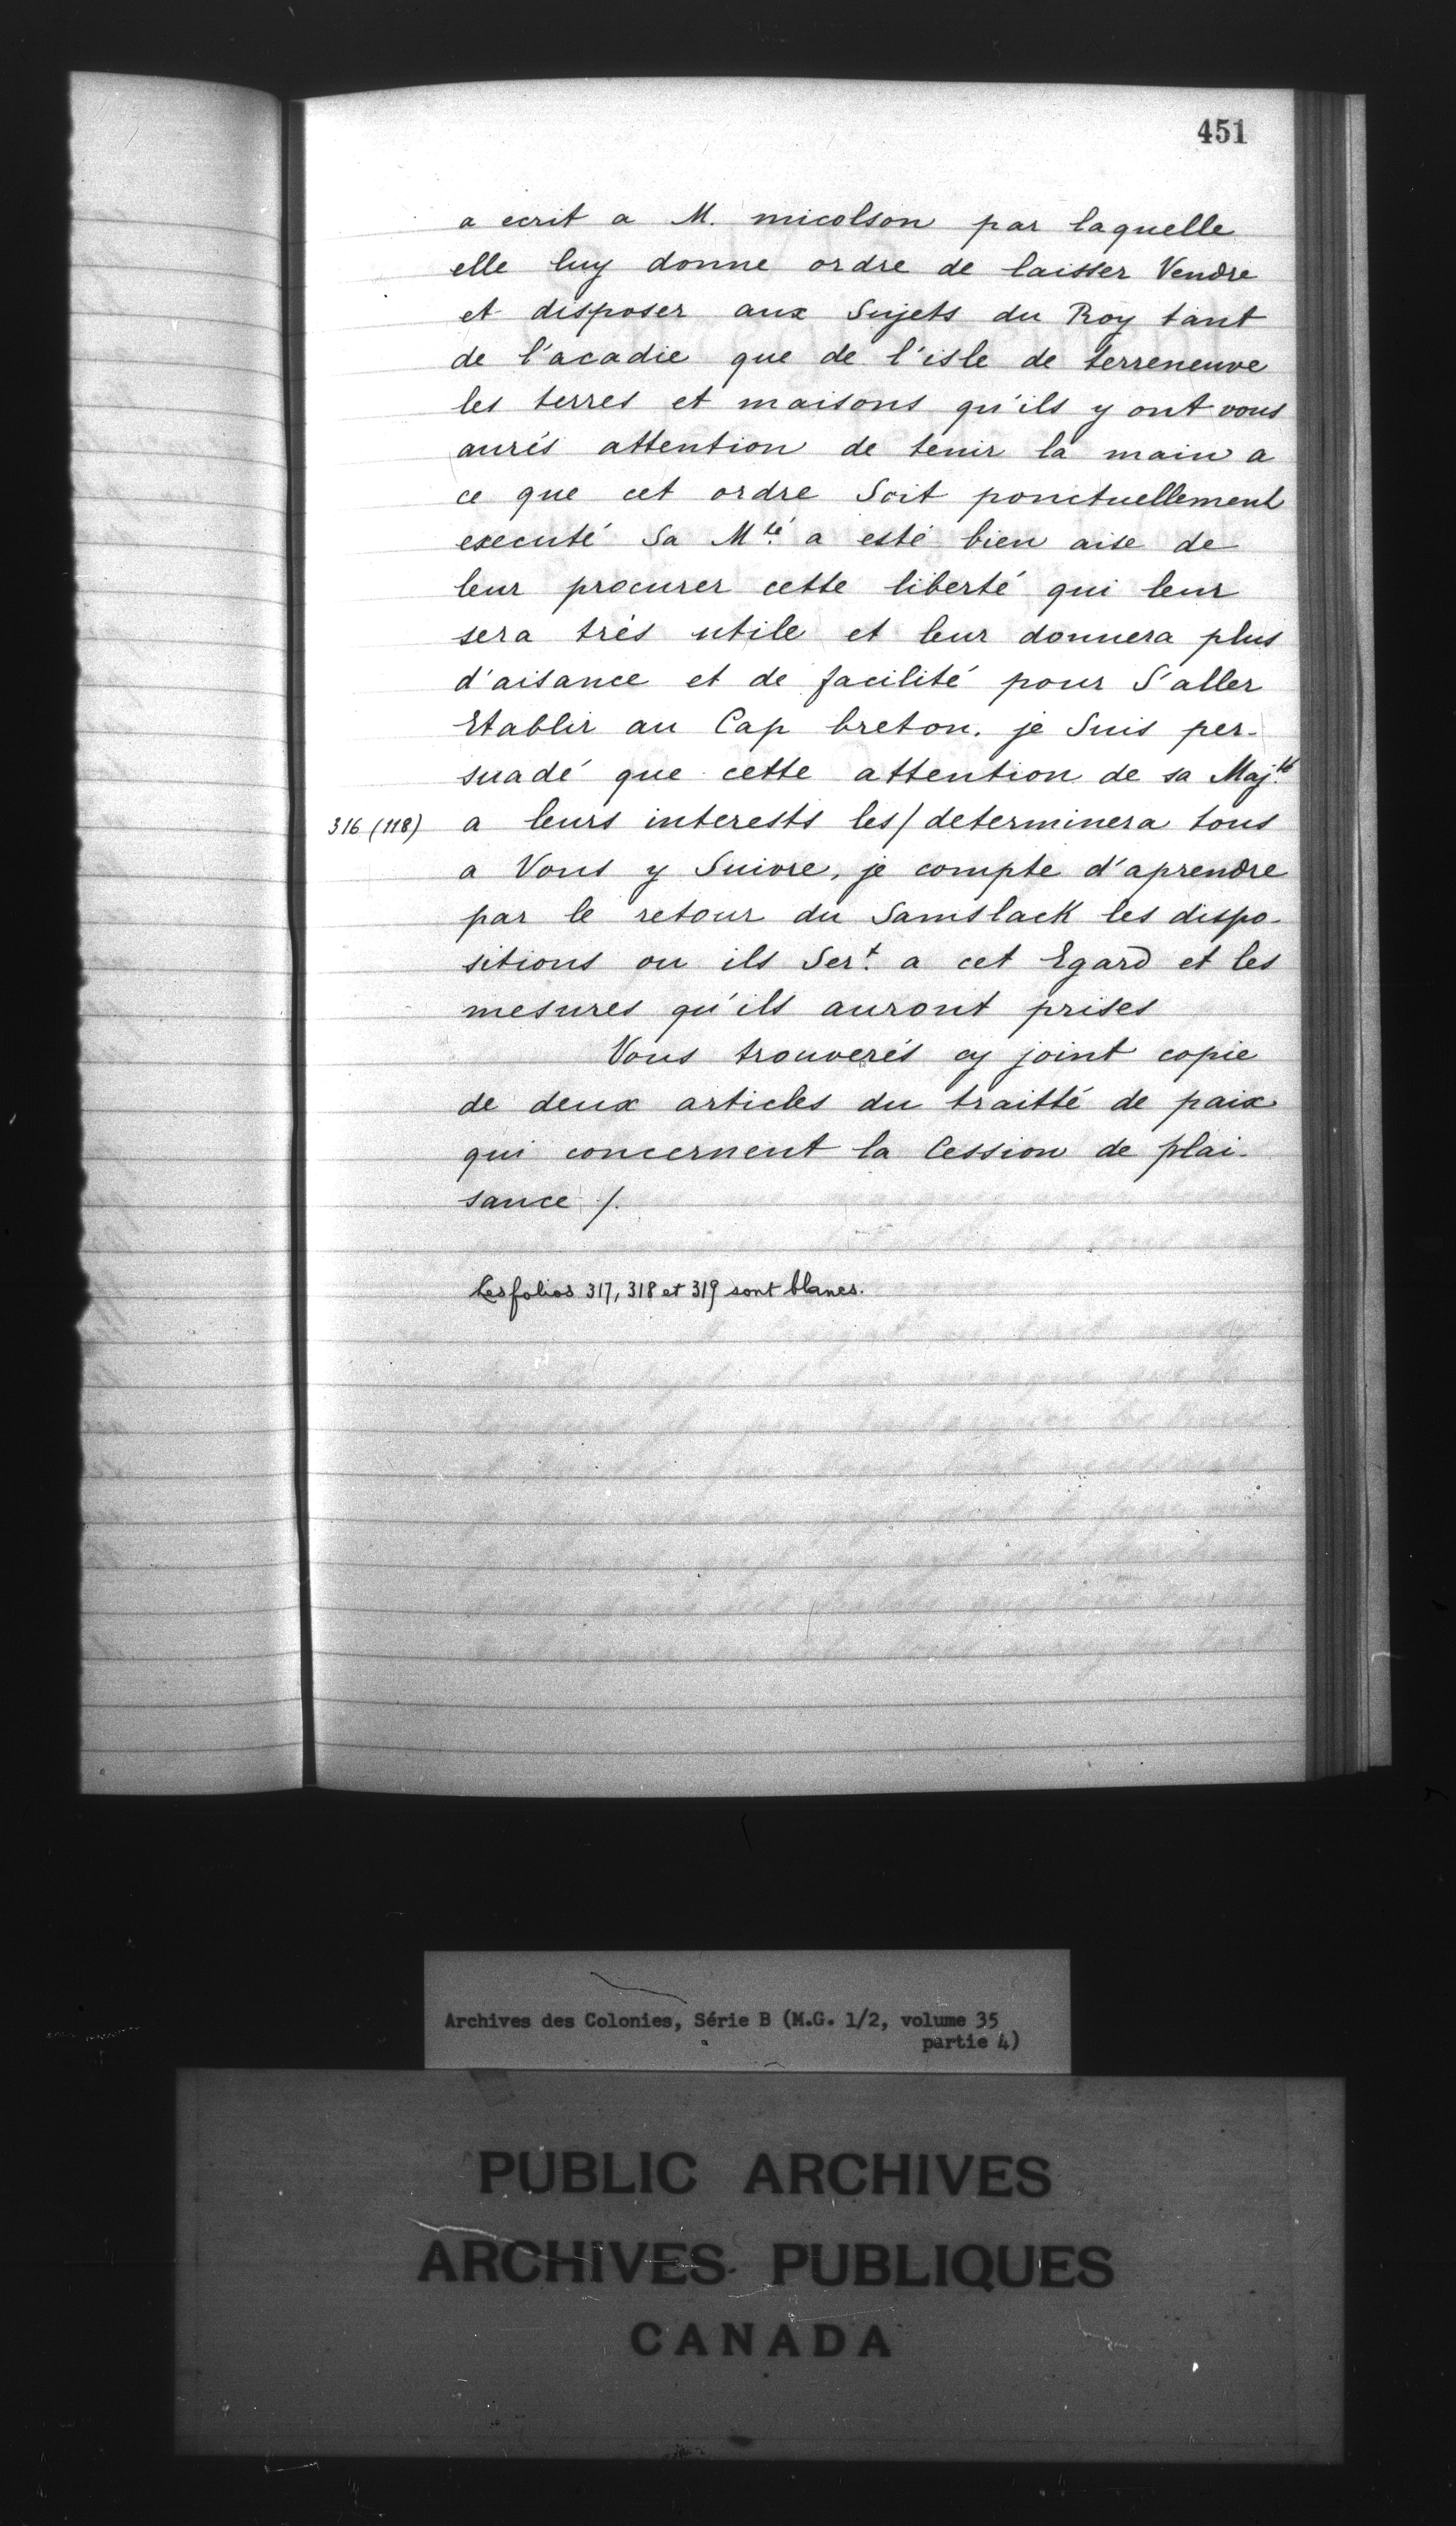 451
a ecrit a M. micolson par laquelle
elle luy donne ordre de laisser Vendre
et disposer aux Sujets du Roy tant
de l'acadie que de l'isle de terreneuve
les terres et maisons qu'ils y ont vous
aurés attention de tenir la main a
ce que cet ordre Soit ponctuellement
executé Sa Mté a esté bien aise de
leur procurer cette liberté qui leur
sera trés utile et leur donnera plus
d'aisance et de facilité pour S'aller
Etablir au Cap breton. je Suis per-
suadé que cette attention de sa Maj.té
316 (118) a leurs interests les/ determinera tous
a Vous y Suivre, je compte d'aprendre
par le retour du Samslack les dispo-
sitions ou ils Ser.t a cet Egard et les
mesures qu'ils auront prises
Vous trouverés cy joint copie
de deux articles du traitté de paix
qui concernent la Cession de plai-
sance /.
Les folios 317, 318 et 319 sont blancs.
Archives des Colonies, Série B (M.G. 1/2, volume 35
partie 4)
PUBLIC ARCHIVES
ARCHIVES PUBLIQUES
CANADA